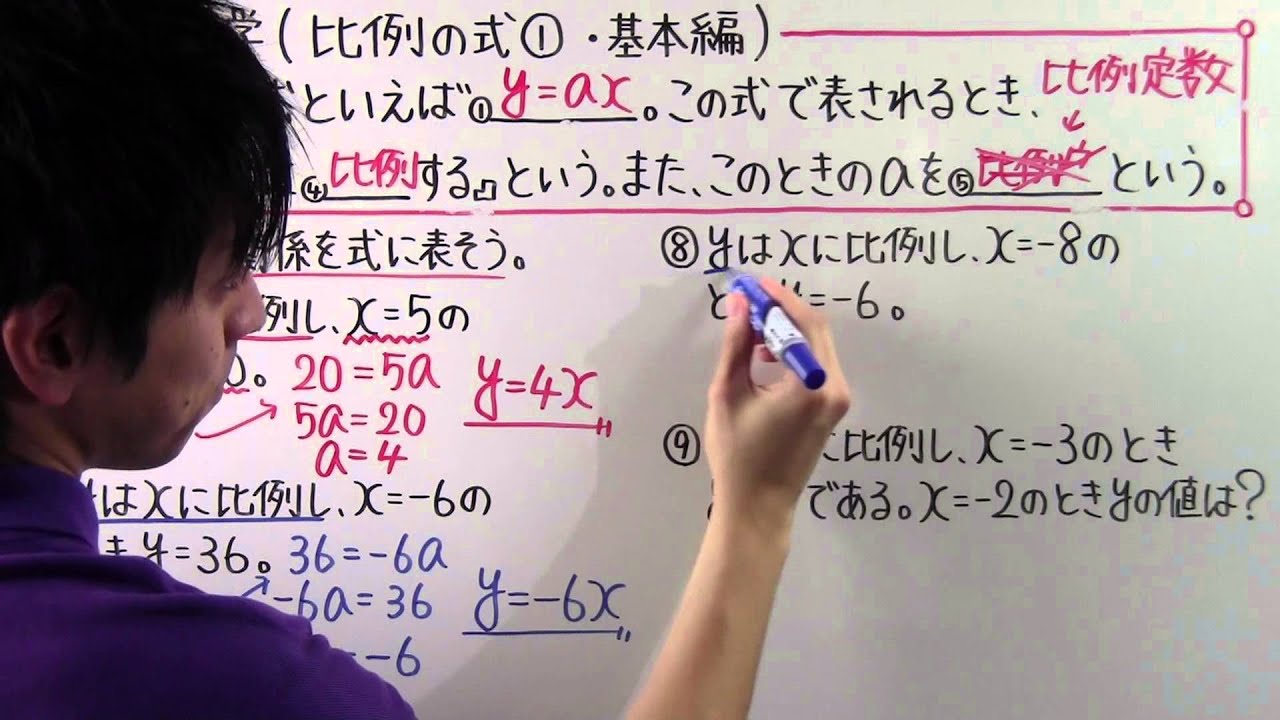 学(比例の式①・基本編)
といえば①y=ax。この式で表されるとき、
比例定数
④比例する』という。また、このときのaを⑤という。
係を式に表そう。
例し、x=5の
。20=5a
5a=20
a=4
y=4x
はxに比例し、x=-6の
y=36。36=-6a
-6a=36
-6
y=-6x
⑧yはxに比例し、x=-8の
と y=-6。
⑨ に比例し、x=-3のとき
である。x=-2のときyの値は?